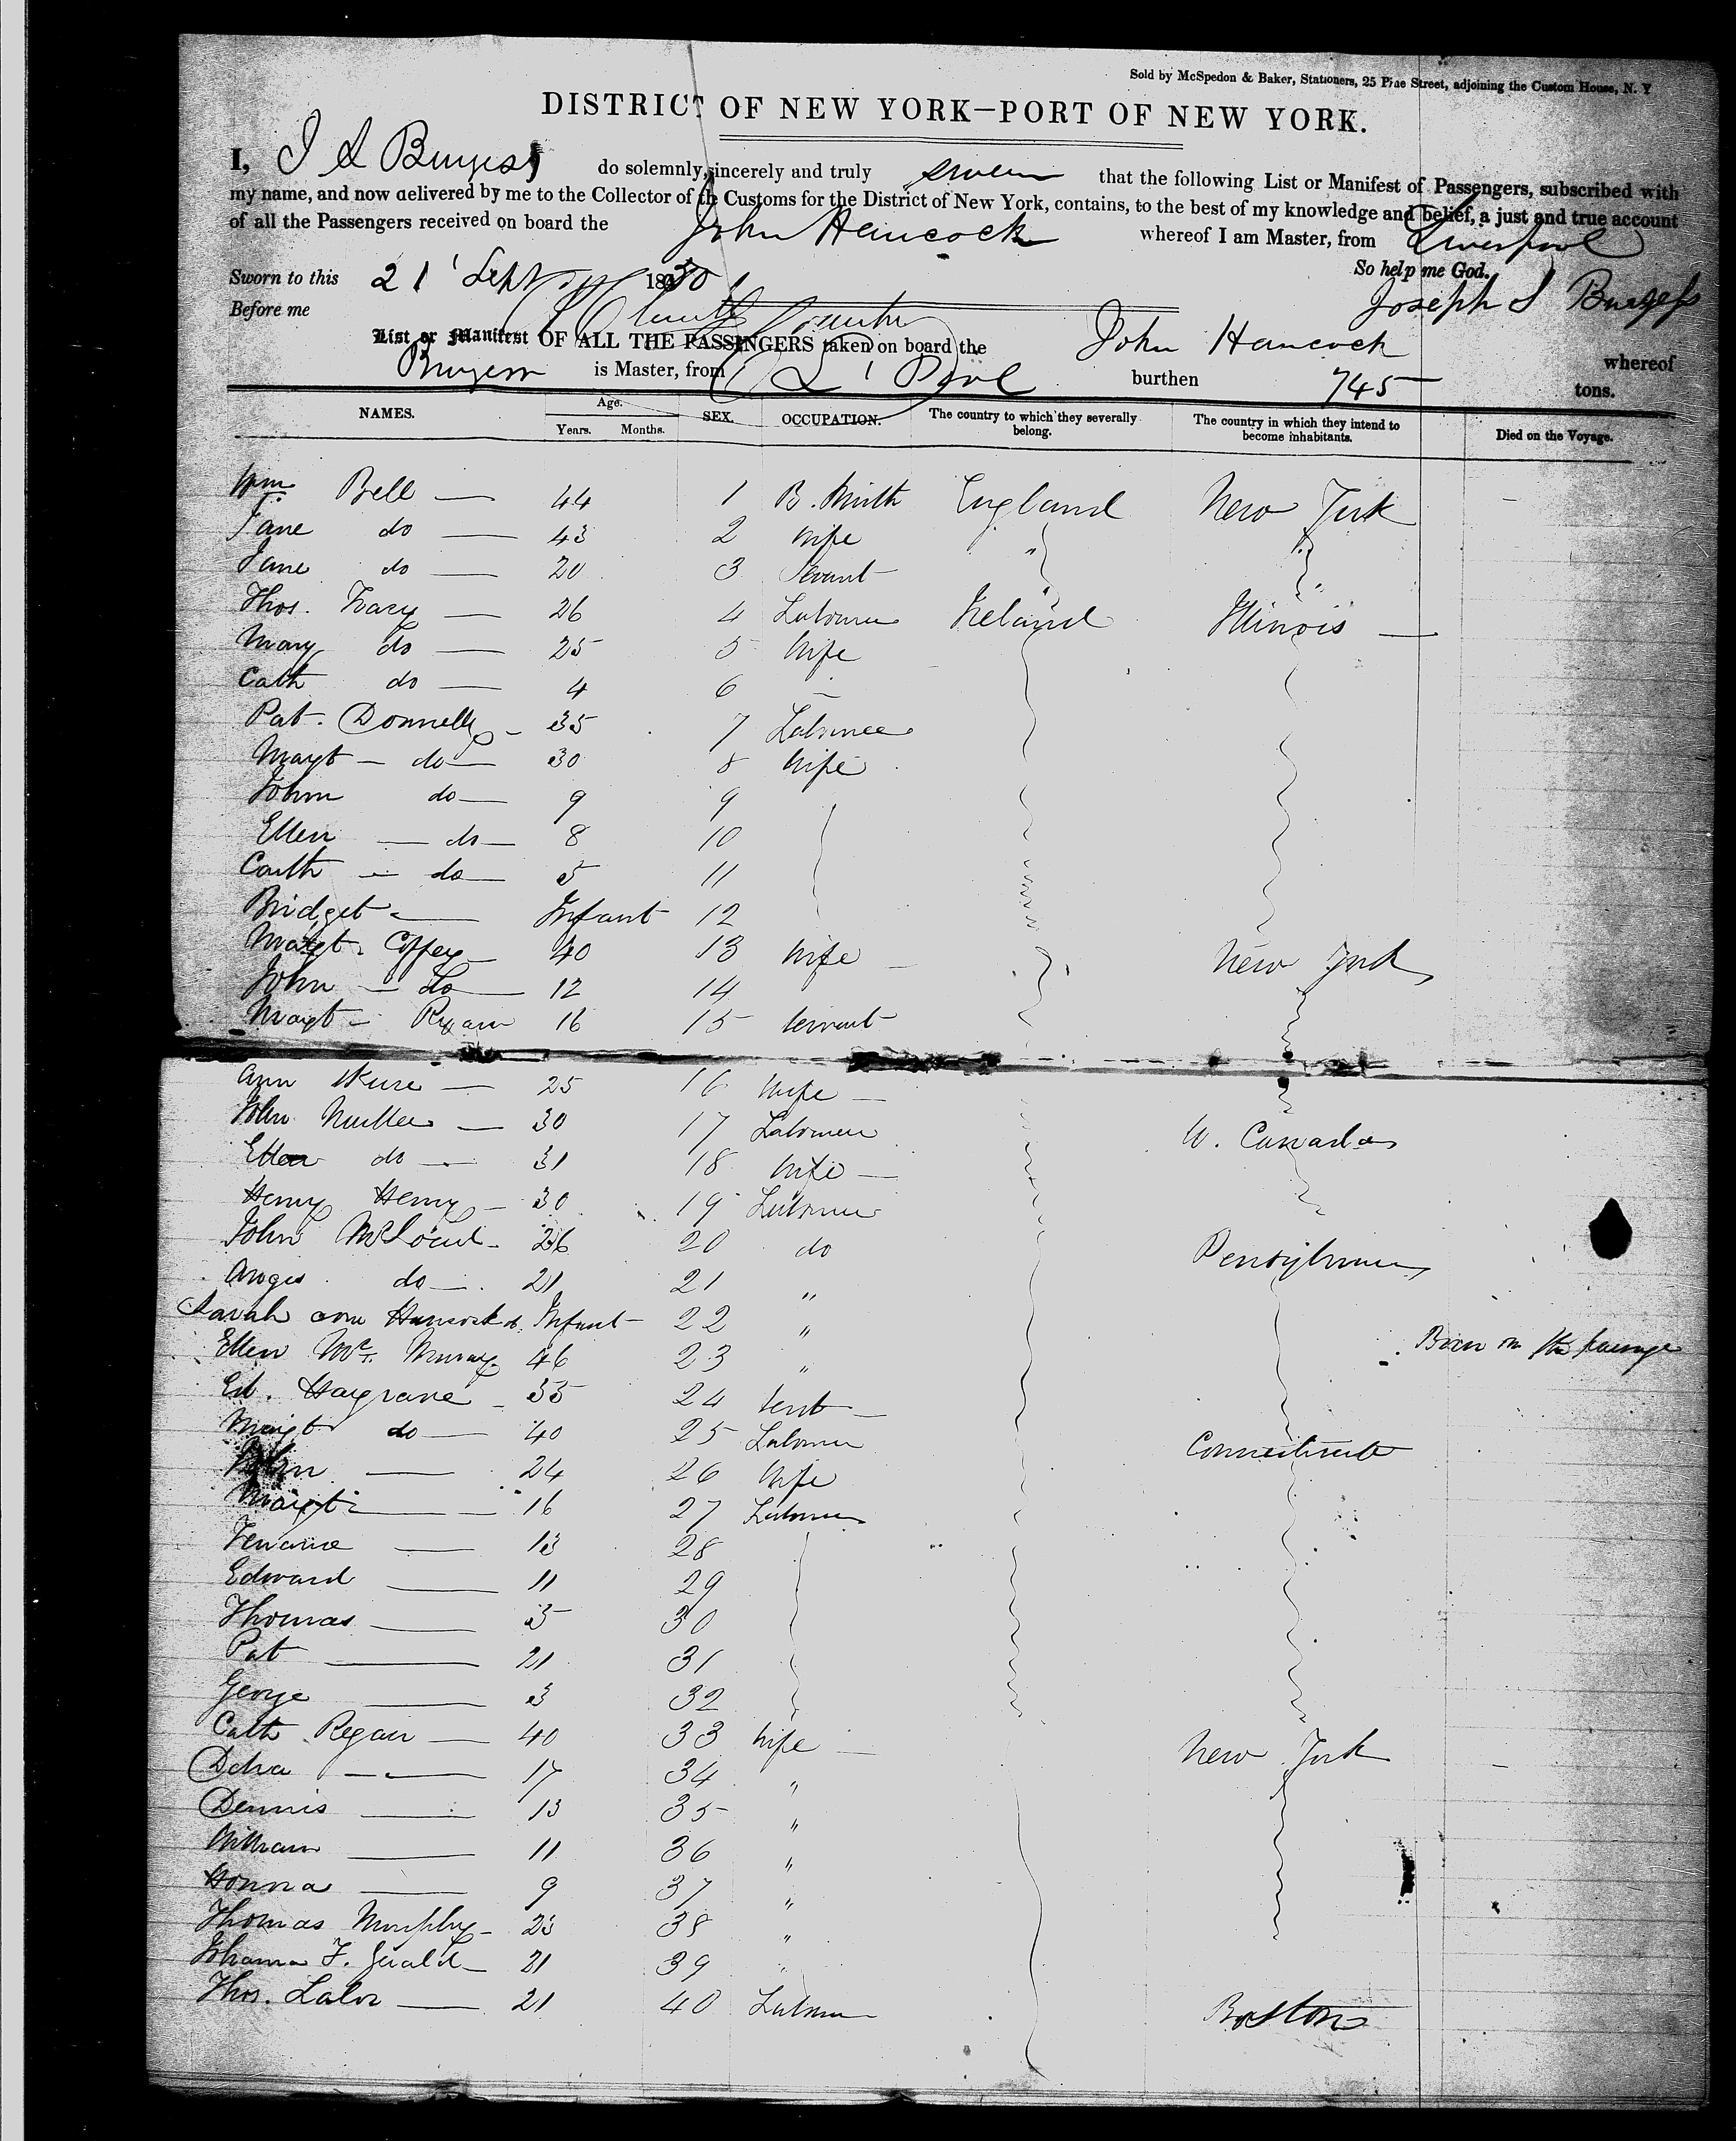 Sold by McSpedon & Baker, Stationers, 25 Pine Street, adjoining the Custom House, N. Y
DISTRICT OF NEW YORK—PORT OF NEW YORK.
I, J S Burgess do solemnly, sincerely and truly swear that the following List or Manifest of Passengers, subscribed with
my name, and now delivered by me to the Collector of the Customs for the District of New York, contains, to the best of my knowledge and belief, a just and true account
of all the Passengers received on board the John Hancock whereof I am Master, from Liverpool
So help me God.
Sworn to this 21 Sept 1850
Joseph S Burgess
Before me
List or Manifest OF ALL THE PASSENGERS taken on board the John Hancock whereof
Burgess is Master, from L'Pool burthen 745 tons.
NAMES. Age. Years. Months. SEX. OCCUPATION. The country to which they severally belong. The country in which they intend to become inhabitants. Died on the Voyage.
Wm Bell — 44 1 B. Smith England New York
Jane do — 43 2 Wife "
Jane do — 20 3 Servant "
Thos. Tracy — 26 4 Labourer Ireland Illinois —
Mary do — 25 5 Wife
Cath do — 4 6 —
Pat. Donnelly - 35 7 Labourer
Margt — do — 30 8 Wife
John do — 9 9
Ellen — do — 8 10
Cath — do — 5 11
Bridget — Infant 12
Margt. Coffey — 40 13 Wife — New York
John — do — 12 14
Margt — Ryan 16 15 Servant
Ann — 25 16 Wife —
John — 30 17 Labourer W. Canada
Ellen do — 31 18 Wife —
Henry Henry — 30 19 Labourer
John - 26 20 do Pensylvania
do — 21 21 "
Sarah Ann Hancock do Infant 22 " Born on the passage
Ellen Murray 46 23 "
Ed. Hargrave - 35 24 —
Margt do — 40 25 Labourer Connecticut
John — 24 26 Wife
Margt — 16 27 Labourer
— 13 28
Edward — 11 29
Thomas — 5 30
Pat — 21 31
George — 3 32
Cath Regan — 40 33 Wife — New York
— 17 34 "
Dennis — 13 35 "
William — 11 36 "
Honna — 9 37 "
Thomas Murphy - 23 38 "
Johanna F. Gerald — 21 39 "
Thos. Lalor — 21 40 Labourer Boston